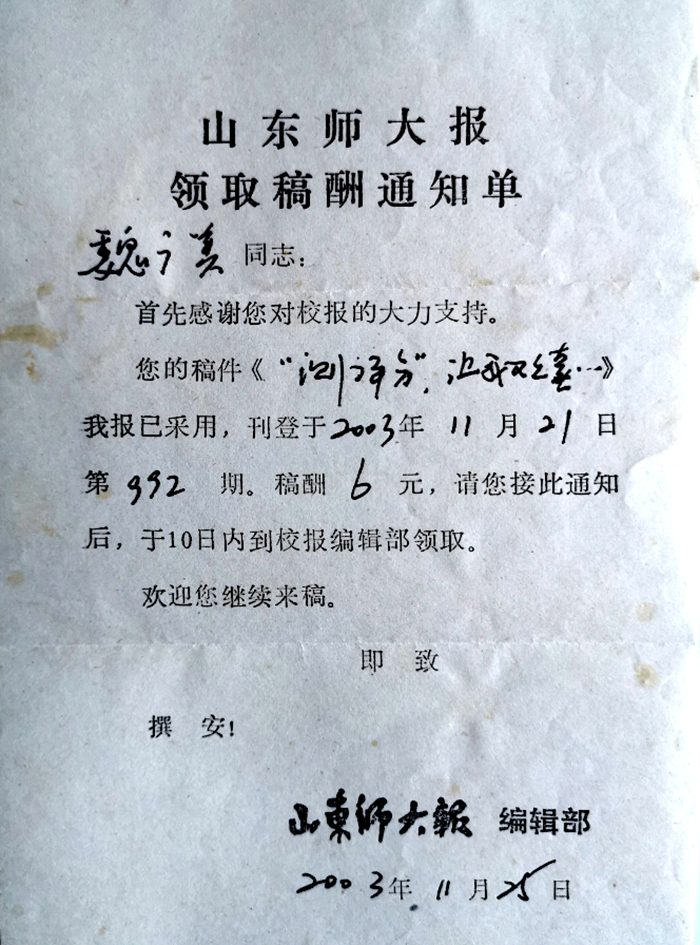 山东师大报
领取稿酬通知单
魏广美同志：
首先感谢您对校报的大力支持。
您的稿件《“测评分”，让我又喜…》
我报已采用，刊登于2003年11月21日
第992期。稿酬6元，请您接此通知
后，于10日内到校报编辑部领取。
欢迎您继续来稿。
即致
撰安！
山東師大報 编辑部
2003年11月25日